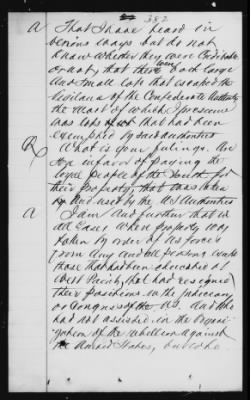 382
A That I have heard in
various ways but do not
know whether they were Creditable
or not, that there were both large
and small lots that escaped the
vigilance of the Confederate Authority
the most of which I presume
was lots that had been
exempted by said authorities
Q What is your feelings. Are
you in favor of paying the
loyal people of the South for
their property, that was taken
and used by the US Authorities
A I am and further that in
all cases when property was
taken by order of US forces
from any and all persons
those that had been educated at
West Point, that had resigned
their positions in the
or Congress of the U.S. and who
had not assisted in the
of the rebellion against
the United States,